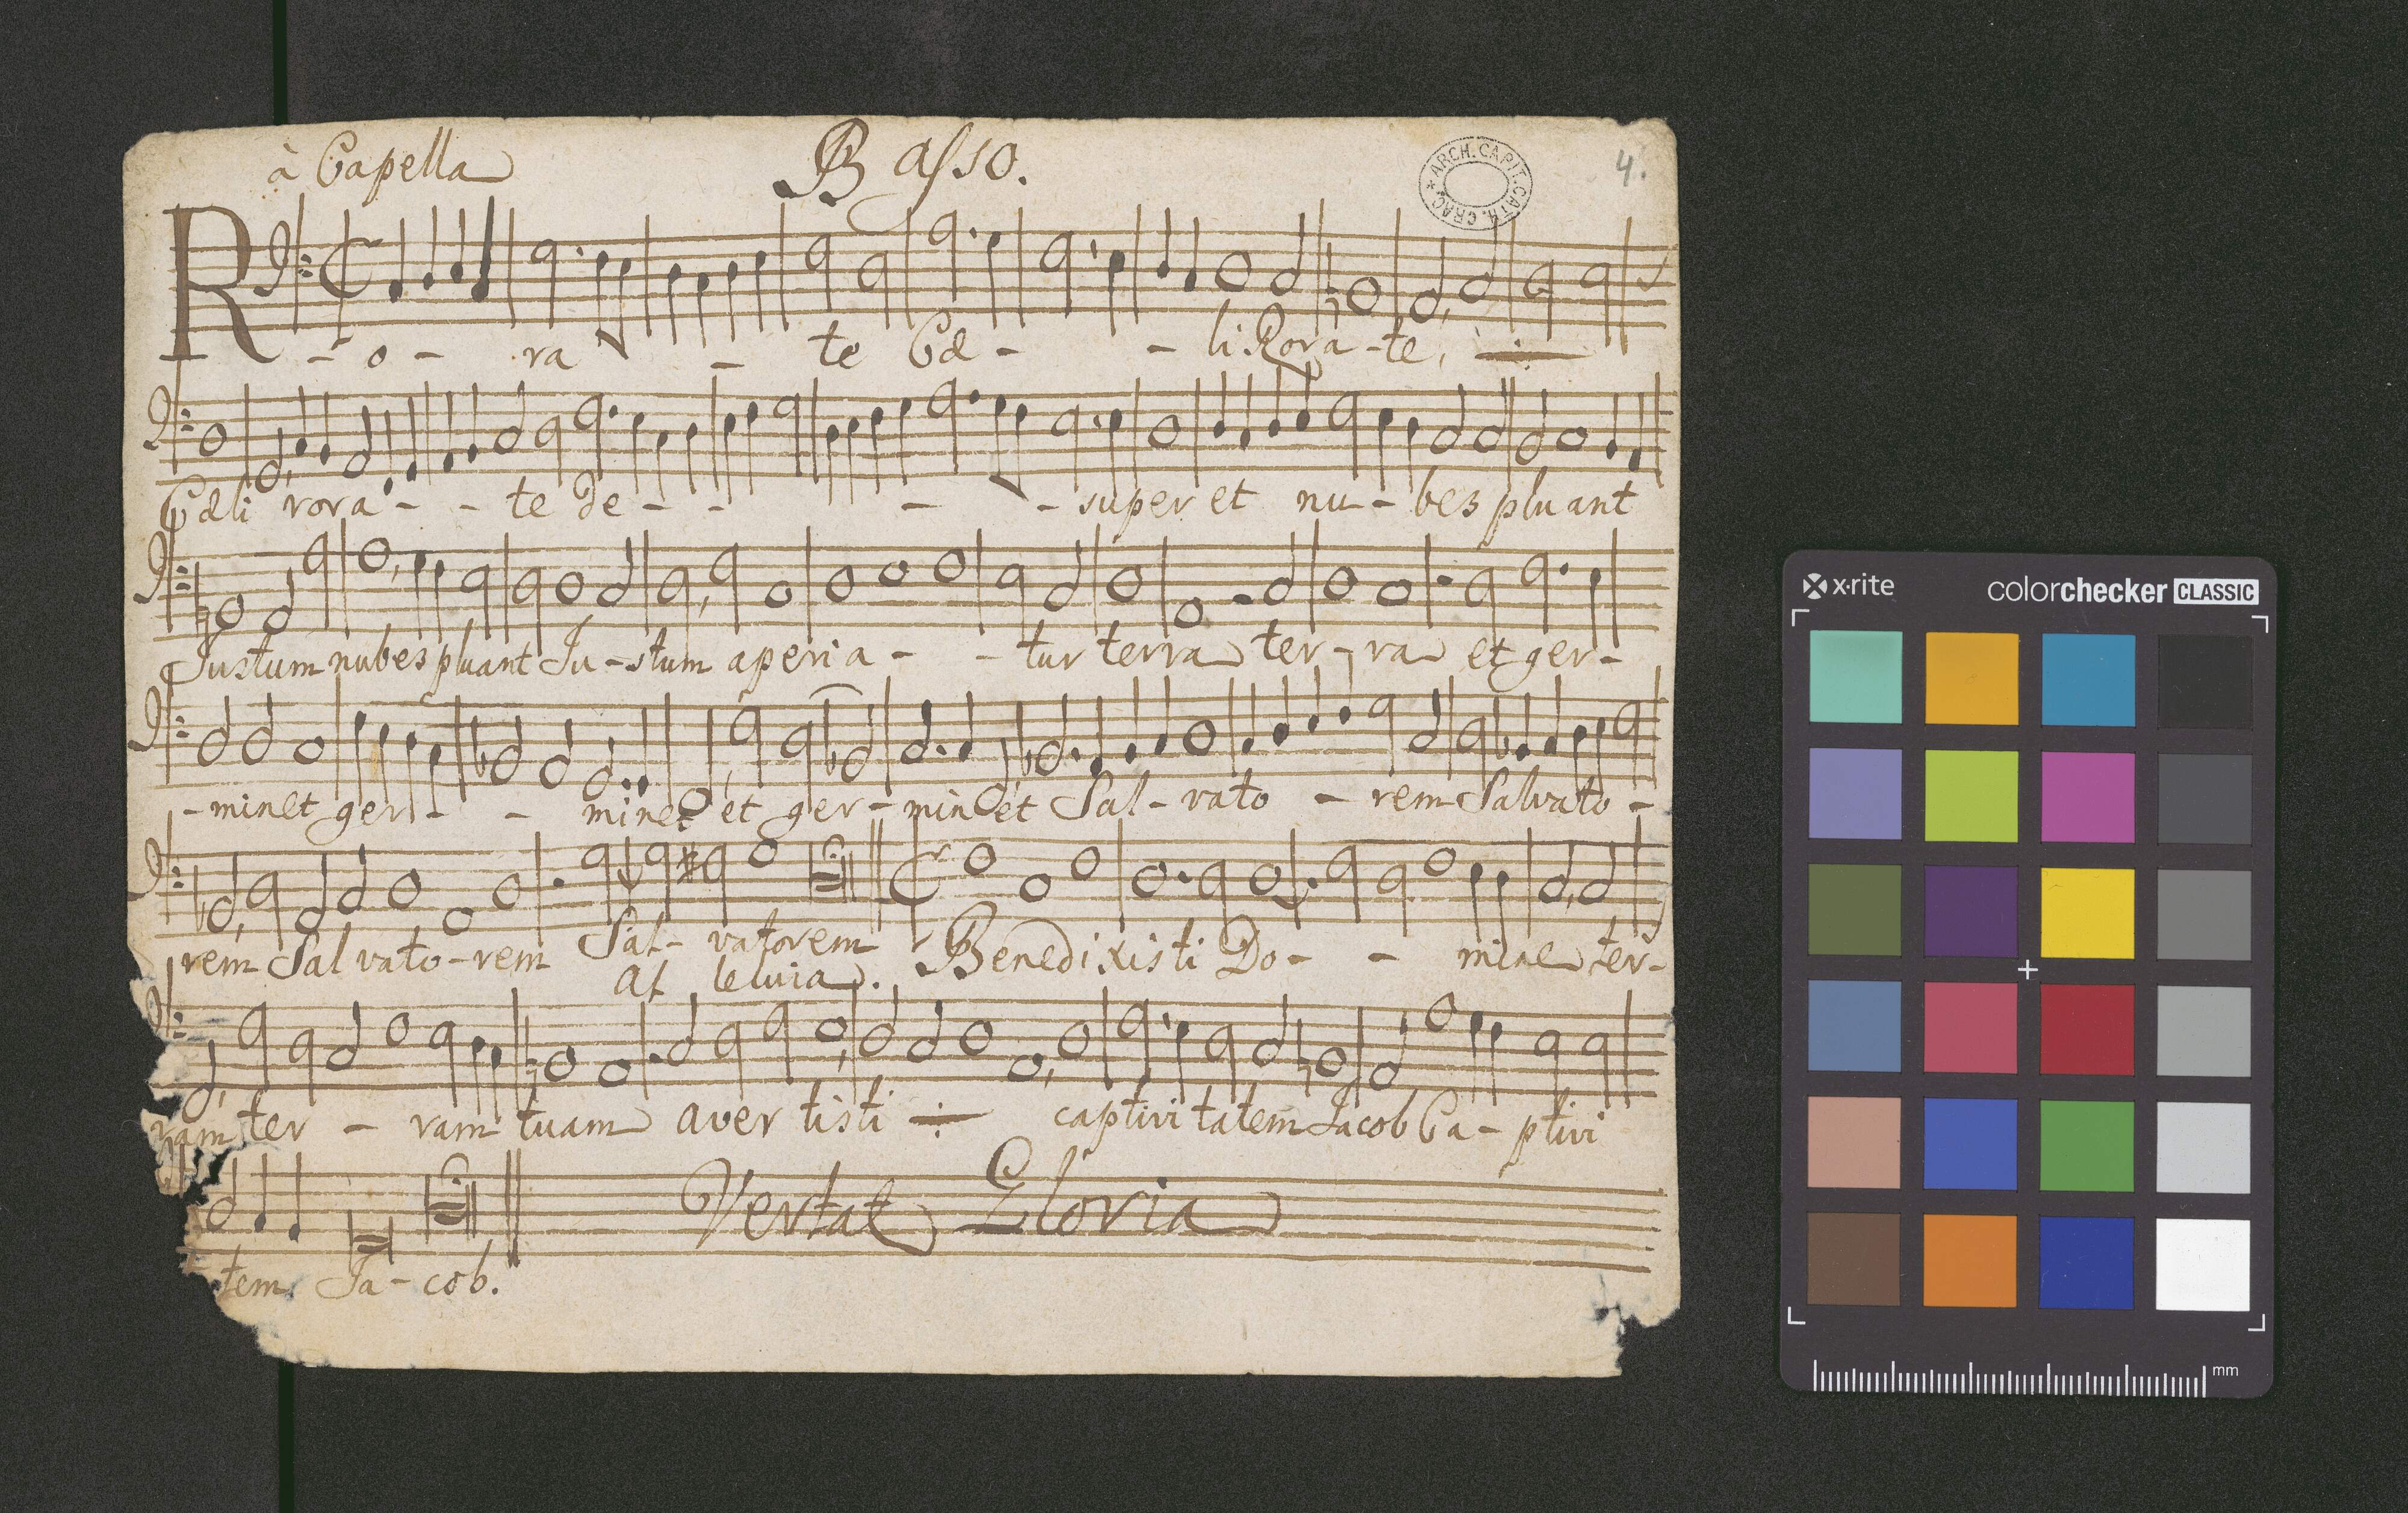 à Capella Basso. 4.
ARCH. CAPIT. CATH. CRAC.
R - o - ra - te Cæ - - li Rora - te,
Cæli rora - - te de - - - - super et nu - bes pluant
Justum nubes pluant Ju - stum aperi a - - tur terra ter - ra et ger -
- minet ger - - minet et ger - minet Sal - vato - rem Salvato -
rem Sal vato - rem Sal - vatorem Benedixisti Do - - mine ter -
al leluia.
ram ter - ram tuam aver tisti captivi tatem Jacob Ca - ptivi
tem Ja - cob.
Vertat Gloria
x·rite colorchecker CLASSIC
mm